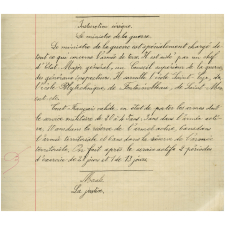 Instruction civique.
Le ministre de la guerre.
Le ministre de la guerre est spécialement chargé de
tout ce qui concerne l'armée de terre. Il est aidé par un chef
d'Etat-Major général, un Conseil supérieur de la guerre,
des généraux inspecteurs. Il surveille l'école Saint-Cyr, de
l'école Polytechnique, de Fontainebleau, de Saint-Mai
xent etc.
Tout Français valide en état de porter les armes doit
le service militaire de 21 à 45 ans. 3 ans dans l'armée acti
ve, 10 ans dans la réserve de l'armée active, 6 ans dans
l'armée territoriale et 6 ans dans la réserve de l'armée
territoriale. On fait après le service actif 2 périodes
d'exercice de 28 jours et 1 de 13 jours.
Morale
La justice.